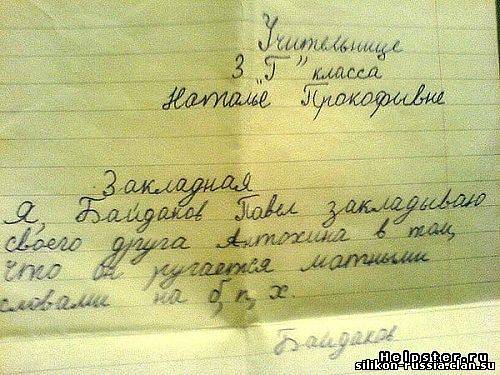 Учительнице
3 "Г" класса
Наталье Прокофивне
Закладная
Я, Байдаков Павел закладываю
своего друга Антохина в том,
что он ругается матными
словами на б, п, х.
Байдаков
Helpster.ru
silikon-russia.clan.su